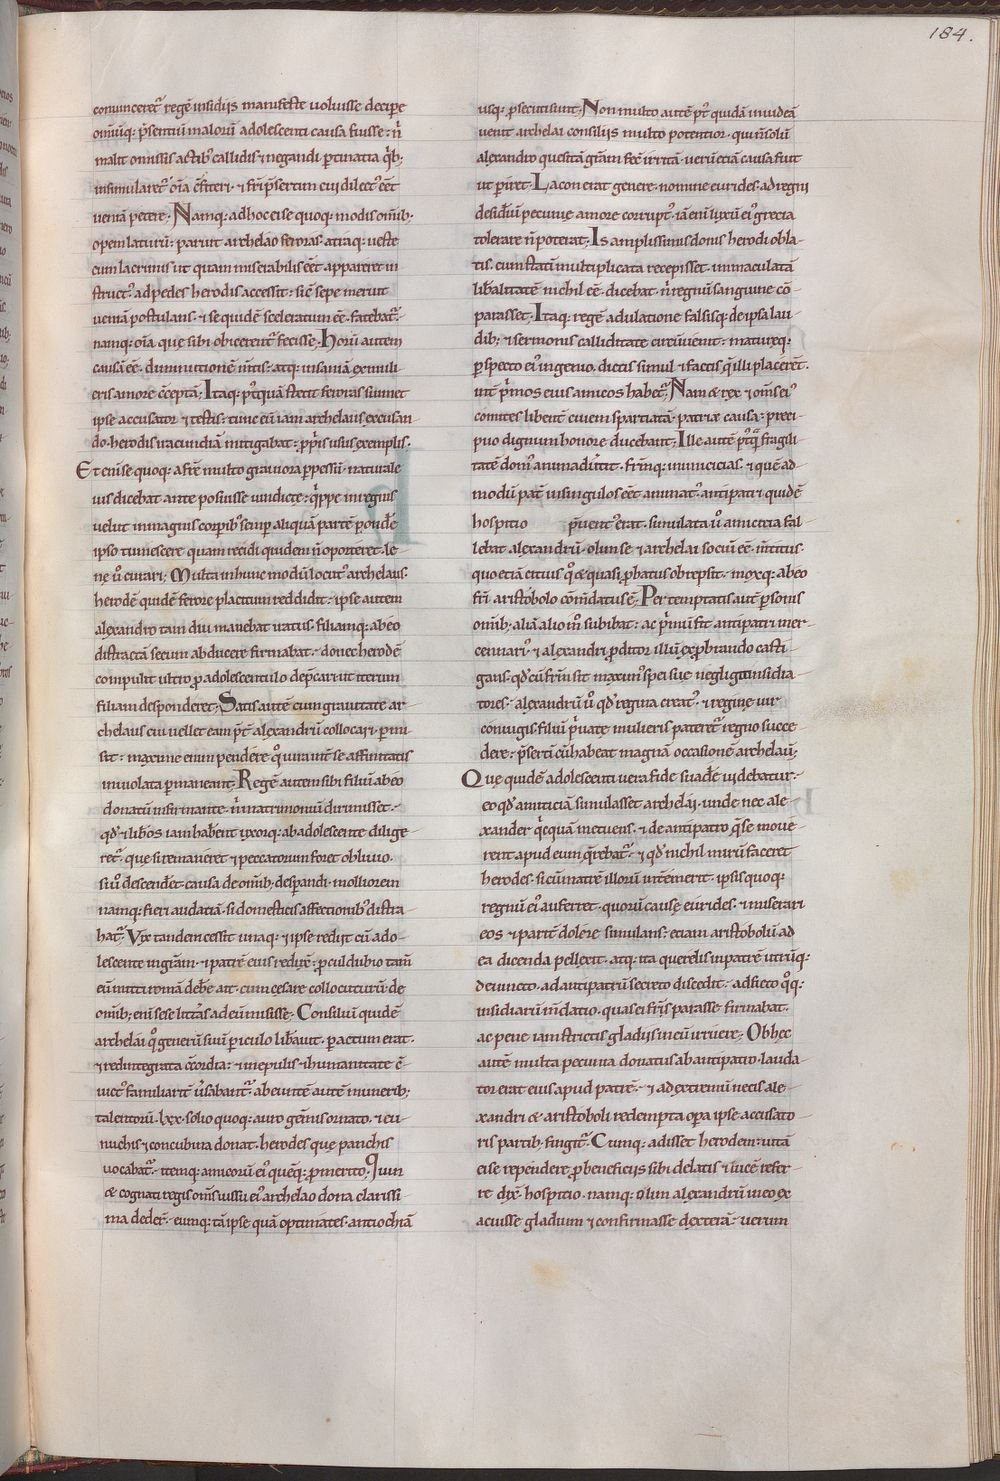 184.
conuincerēt regē insidijs manifeste uoluisse decipe
om̄iūq; p̄sentiū maloꝝ adolescenti causa fuisse: n̄
malit omissis actib; callidis ⁊ negandi ptinatia q̄b;
insimularet᷑ oīa ꝯfiteri · ⁊ fr̄i p̄sertim cui dilect᷒ eēt
ueniā petere; Namq; ad hoc eise quoq; modis om̄ib;
opem laturū: paruit archelao feroras · atraq; ueste
cum lacrimis ut quam miserabilis eēt appareret in
struct᷒ ad pedes herodis accessit: sic̄ sepe meruit
ueniā postulans · ⁊ se quidē sceleratum eē · fatebat᷑ ·
namq; oīa que sibi obicerent᷑ fecisse; Horū autem
causā eē · diminutionē m̄tis · atq; insaniā ex muli
eris amore ꝯceptā; Itaq; p᷒tquā stetit feroras sūmet
ipse accusator ⁊ testis: tunc eū iam archelaus excusan
do · herodis iracundiā mitigabat: pp̄ris usus exemplis ·
Et enī se quoq; a fr̄e multo grauiora ppessū · naturale
ius dicebat ante posuisse uindictę: q̄ppe in regnis
uelut in magnis corpib᷒ semp aliquā partē pondēe
ipso tumescere quam recidi quidem n̄ oporteret · le
ne u̇ curari; Multa in hunc modū locut᷒ archelaus ·
herodē quidē ferore placitum reddidit: ipse autem
alexandro tam diu manebat iratus · filiamq; ab eo
distractā secum abducere firmabat · donec herodē
compulit ultro p adolescentulo depcari ut iterum
filiam desponderet; Satis autē cum grauitate ar
chelaus cui uellet eam p̄t̄ alexandrū collocari · pmi
sit: maxime enim pendere q᷒ iura int̄ se affinitatis
inuiolata pmaneant; Regē autem sibi filiū ab eo
donatū insinuante · n̄ matrimoniū dirimisset ·
qd̄ ⁊ lib̄os iam habēnt uxorq; ab adolescente dilige
ret᷑ · que si remaneret ⁊ peccatorum foret obliuio ·
si u᷒ descendet · causa de om̄ib; despandi · molliorem
namq; fieri audatiā · si domesticis affectionib᷒ distra
hat᷑; Vix tandem cessit unaq; ⁊ ipse redijt cū ado-
lescente in gr̄am · ⁊ patrē eius reduxē: procul dubio tam̄
eū mitti romā debēe ait · cum cesare collocuturū: de
om̄ib; enī se se litt̄as ad eū misisse; Consiliū quidē
archelai q᷒ generū suū piculo lib̄auit · pactum erat ·
⁊ redintegrata ꝯcordia: ⁊ in epulis · ⁊ humanitate c̄
uict᷒ familiarit̄ uersabant᷑ · abeuntē autē munerib;
talentorū · lxx · solio quoq; auro gēmis ornato · ⁊ eu-
nuchis ⁊ concubina donat · herodes que panchis
uocabat᷑ · itemq; amicorū ei᷒ quēq; p merito; Qīn
& cognati regis om̄s iussu ei᷒ archelao dona clarissi-
ma deder̄ · eumq; tā ipse quā optimates · antiochiā
usq; psecuti sunt; Non multo autē p᷒t quidā in iudeā
uenit archelai consilijs multo potentior · qui n̄ solū
alexandro quesitā gr̄am fec̄ irritā · uerū etiā causa fuit
ut piret; Lacon erat genere · nomine eurides · ad regni
desidiū pecunię amore corrupt᷒ · iā enī luxū ei᷒ grecia
tolerare n̄ poterat; Is amplissimis donis herodi obla-
tis · cum statū multiplicata recepisset · immaculatā
lib̄alitatē nichil eē · dicebat · n̄ regnū sanguine cō-
parasset; Itaq; regē adulatione falsisq; de ipsa lau-
dib; ⁊ sermonis calliditate circūuenit: matureq;
pspecto ei᷒ ingenio · dictis simul ⁊ factis q̄ illi placerēt ·
int̄ p̄mos eius amicos habet᷑; Nam & rex ⁊ om̄s ei᷒
comites libent̄ ciuem spartiatā · patriæ causa · preci-
puo dignum honore ducebant; Ille autē p᷒tq̄ fragili-
tatē dom᷒ animaduertit · fr̄mq; inimicicias · ⁊ quē ad-
modū pat̄ in singulos eēt animat᷒ · antipatri quidē
hospitio puent᷒ erat · simulata u̇ amicitia fal-
lebat alexandrū · olim se ⁊ archelai sociū eē · m̄titus ·
quo etiā citius q᷒ & quasi probatus obrepsit · moxq; ab eo
fr̄i aristobolo cōmdatus ē; Per temptatis aut̄ psonis
om̄ib; aliā alio m̊ subibat: ac p̄mū fit antipatri mer-
cennari᷒ · ⁊ alexandri proditor illū exprobrando casti-
gans · qd̄ cū fr̄m sit maxim᷒ spei suę neglig̃t insidia-
tores · alexandrū u̇ qd̄ regina creat᷒ · ⁊ reginę uir
coniugis filiū p̄uatę mulieris pateret᷑ regno succe-
dere: p̄serti cū habeat magnā occasionē archelaū;
Que quidē adolescenti uera fide suadēe uidebatur ·
eo qd̄ amiciciā simulasset archelai · unde nec ale-
xander q̄cquā metuens · ⁊ de antipatro q̄ se moue-
rent apud eum q̄rebat᷑ · ⁊ qd̄ nichil mirū faceret
herodes · si cū matrē illorū intēmerit · ipsis quoq;
regnū ei᷒ auferret · quorū causę eurides · ⁊ miserari
eos ⁊ parit̄ dolere simulans: etiam aristobolū ad
ea dicenda pellexit · atq; ita querelis in patrē utrūq;
deuincto · ad antipatrū secreto discedit · adficto q᷒q;
insidiarū m̄datio · quasi ei fr̄s parasse firmabat ·
ac pene iam strictis gladijs in eū irruere; Ob hęc
autē multa pecunia donatus ab antipatro · lauda-
tor erat eius apud patrē · ⁊ ad extremū necis ale-
xandri & aristoboli redempta opa ipse accusato-
ris partib; fungit᷑; Cumq; adisset herodem: uitā
ei se rependere pro beneficijs sibi delatis ⁊ lucē refer-
re dix̄ hospitio · namq; olim alexandrū in eo ex
acuisse gladium ⁊ confirmasse dexterā · uerum